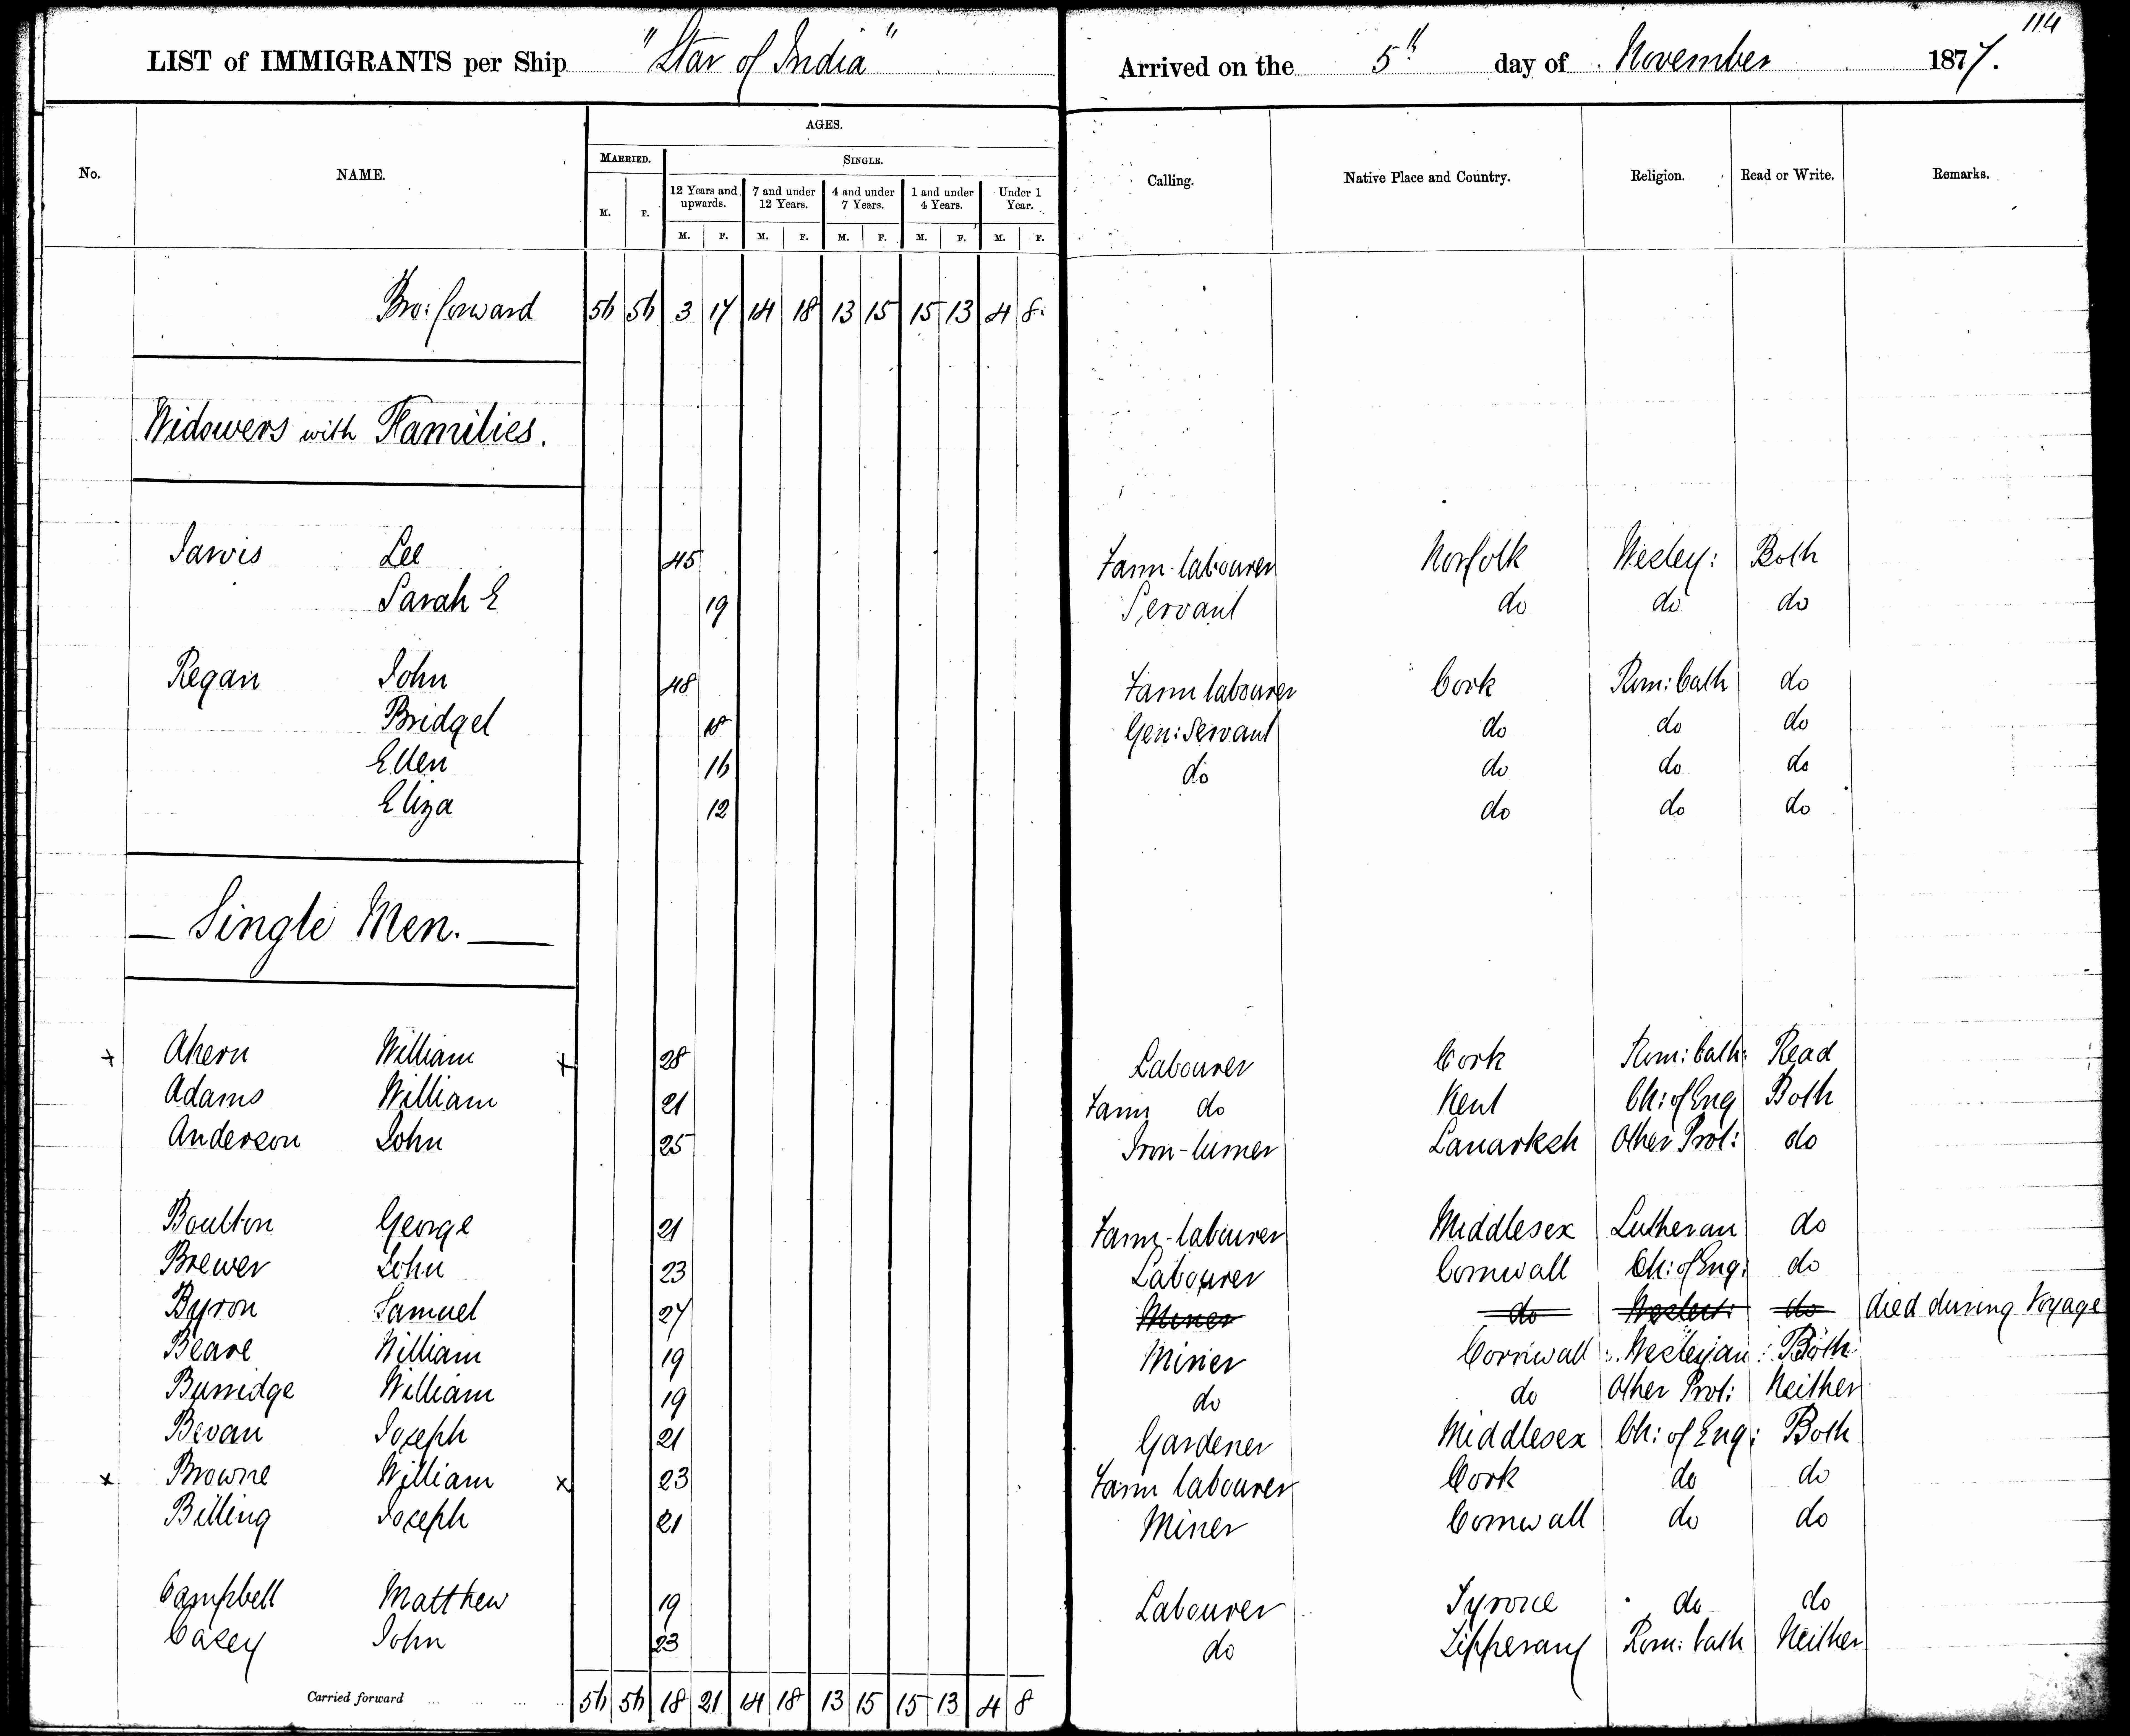 114
LIST of IMMIGRANTS per Ship "Star of India" Arrived on the 5th day of November 1877.
No. NAME. AGES. Calling. Native Place and Country. Religion. Read or Write. Remarks.
MARRIED. SINGLE.
12 Years and upwards. 7 and under 12 Years. 4 and under 7 Years. 1 and under 4 Years. Under 1 Year.
M. F. M. F. M. F. M. F. M. F. M. F.
Bro: forward 56 56 3 17 14 18 13 15 15 13 4 8
Widowers with Families.
Jarvis Lee 45 Farm-labourer Norfolk Wesley: Both
Sarah E 19 Servant do do do
Regan John 48 Farm labourer Cork Rom: Cath do
Bridget 18 Gen: Servant do do do
Ellen 16 do do do do
Eliza 12 do do do
Single Men.
+ Ahern William + 28 Labourer Cork Rom: Cath: Read
Adams William 21 Farm do Kent Ch: of Eng Both
Anderson John 25 Iron-turner Lanarksh Other Prot: do
Boulton George 21 Farm-labourer Middlesex Lutheran do
Brewer John 23 Labourer Cornwall Ch: of Eng: do
Byron Samuel 27 Miner do do died during Voyage
Beare William 19 Miner Cornwall Wesleyan: Both
Burridge William 19 do do Other Prot: Neither
Bevan Joseph 21 Gardener Middlesex Ch: of Eng: Both
x Browne William x 23 Farm labourer Cork do do
Billing Joseph 21 Miner Cornwall do do
Campbell Matthew 19 Labourer Tyrone do do
Casey John 23 do Tipperary Rom: Cath Neither
Carried forward ... ... ... ... 56 56 18 21 14 18 13 15 15 13 4 8